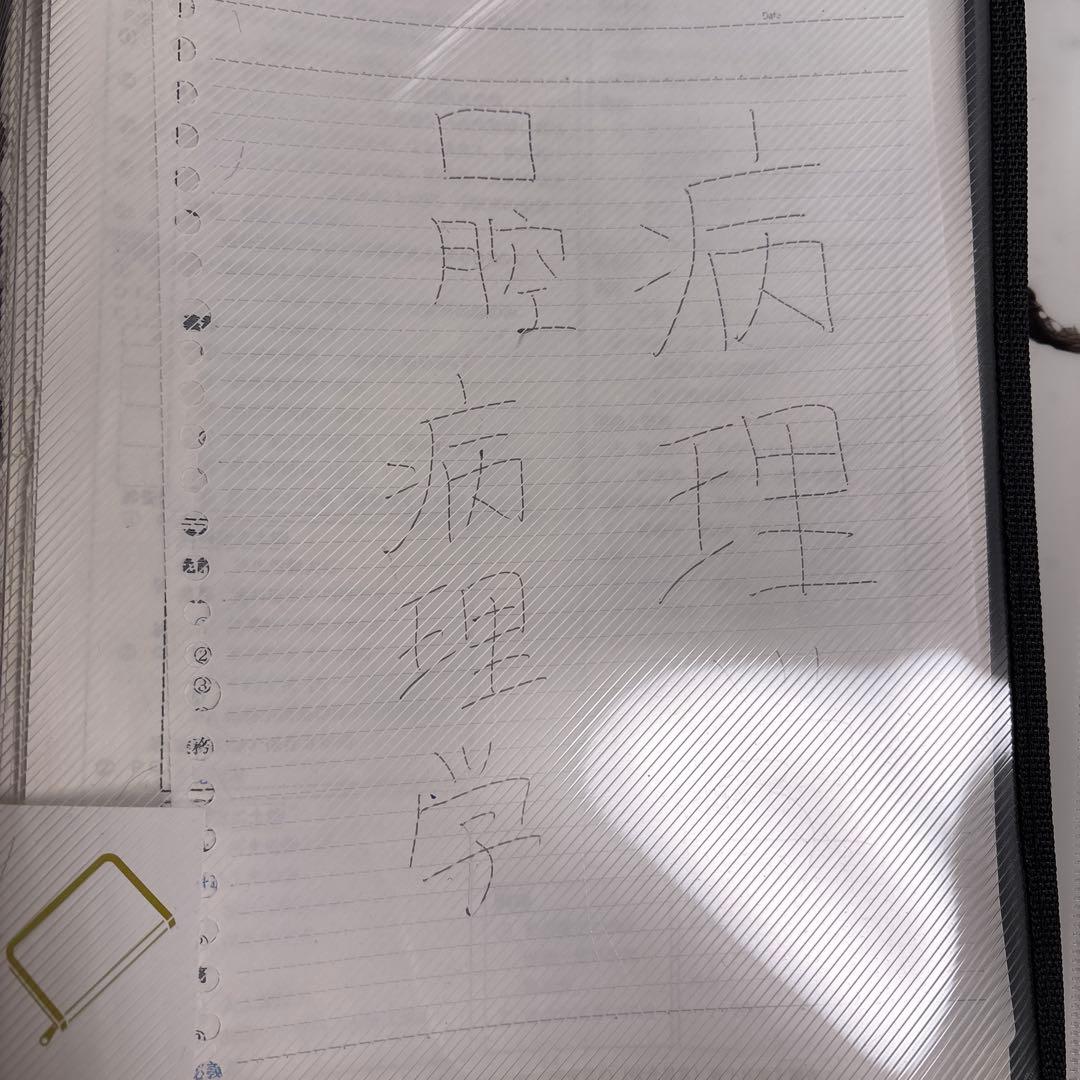 Date
病理
口腔病理学
②
③